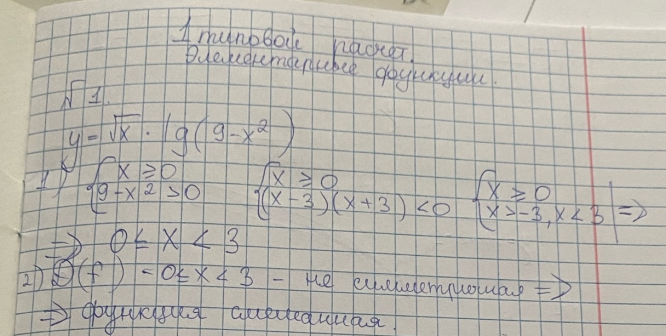 1 типовой расчет.
Элементарные функции.
№1.
y = √x · lg(9-x²)
1) {x ≥ 0 {x ≥ 0 {x ≥ 0
{9-x² > 0 {(x-3)(x+3) < 0 {x > -3, x < 3 | =>
=> 0 ≤ x < 3
2) D(f) - 0 ≤ x < 3 - не симметричная =>
=> функция смешанная.